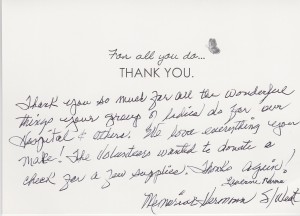 For all you do...
THANK YOU.
Thank you so much for all the wonderful
things your group of ladies do for our
Hospital & others. We love everything you
make! The Volunteers wanted to donate a
check for a few supplies. Thanks again!
Memorial Hermann S/West